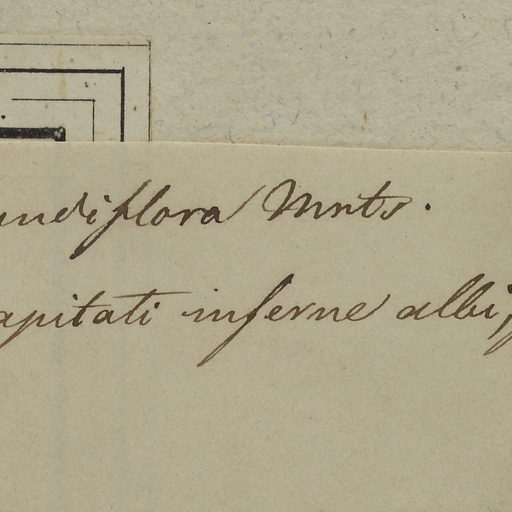 andiflora Mrts.
apitati inferne albi,